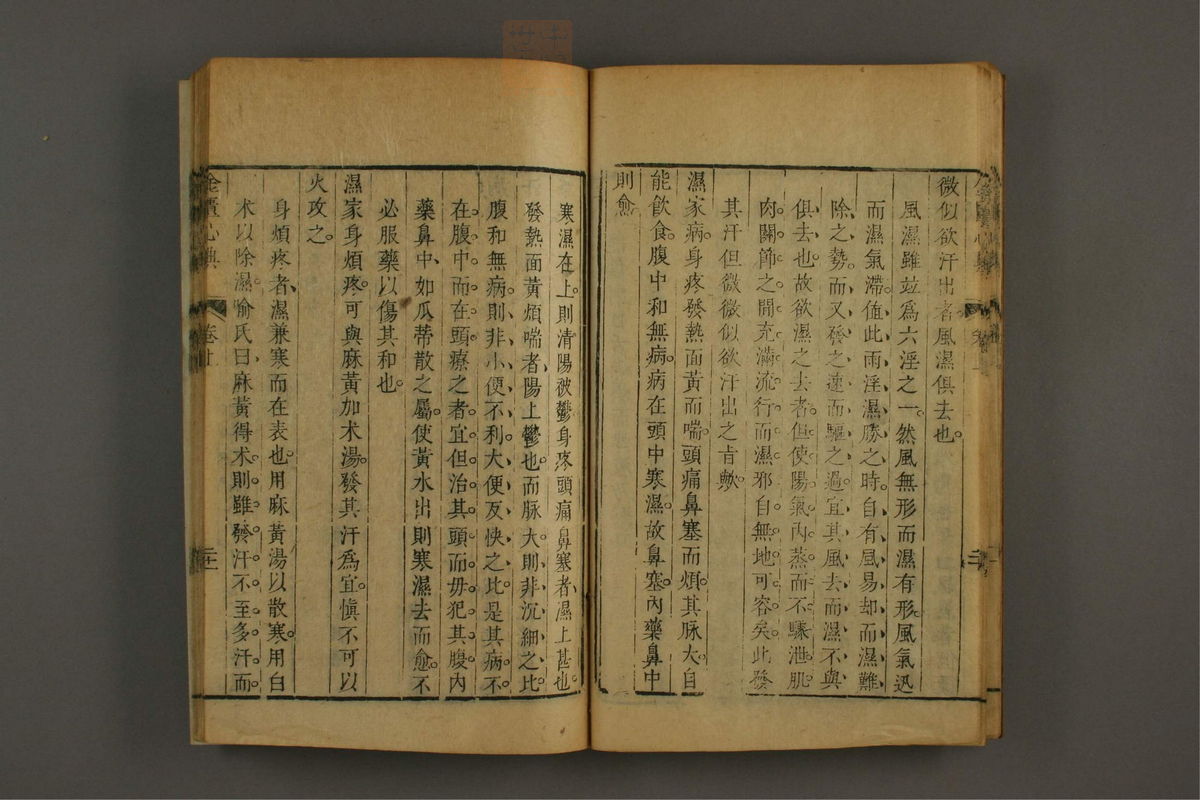 微似欲汗出者。風濕俱去也。
風濕雖並爲六淫之一。然風無形而濕有形。風氣迅
而濕氣滯。值此雨淫濕勝之時。自有風易却而濕難
除之勢。而又發之速而驅之過。宜其風去而濕不與
俱去也。故欲濕之去者。但使陽氣內蒸而不驟泄。肌
肉關節之間充滿流行。而濕邪自無地可容矣。此發
其汗但微微似欲汗出之旨歟。
濕家病。身疼發熱面黃而喘。頭痛鼻塞而煩。其脉大。自
能飲食。腹中和無病。病在頭中寒濕。故鼻塞。內藥鼻中
則愈。
寒濕在上。則清陽被鬱。身疼頭痛鼻塞者。濕上甚也。
發熱面黃煩喘者。陽上鬱也。而脉大。則非沉細之比。
腹和無病。則非小便不利大便反快之比。是其病不
在腹中而在頭。療之者。宜但治其頭而毋犯其腹。內
藥鼻中。如瓜蒂散之屬。使黃水出則寒濕去而愈。不
必服藥以傷其和也。
濕家身煩疼。可與麻黃加术湯。發其汗爲宜。慎不可以
火攻之。
身煩疼者。濕兼寒而在表也。用麻黃湯以散寒。用白
术以除濕。喻氏曰。麻黃得术。則雖發汗。不至多汗。而
金匱心典
卷上
二十一